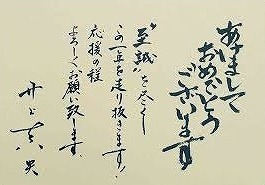 あけまして
おめでとう
ございます
"至誠"を尽くし
この一年を走り抜きます!
応援の程
よろしくお願い致します。
井上真央